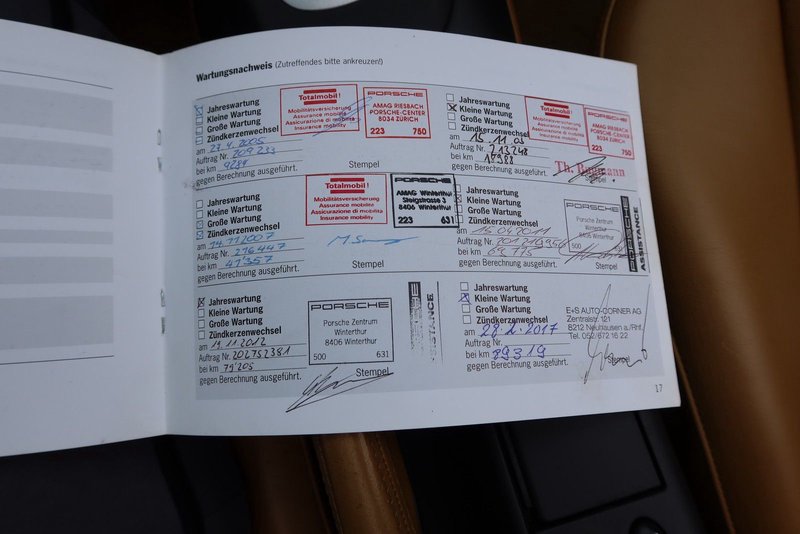 Wartungsnachweis (Zutreffendes bitte ankreuzen!)
Jahreswartung
Kleine Wartung
Große Wartung
Zündkerzenwechsel
am 27.4.2005
Auftrag Nr. 209 233
bei km 9287
gegen Berechnung ausgeführt.
Totalmobil!
Mobilitätsversicherung
Assurance mobilité
Assicurazione di mobilità
Insurance mobility
PORSCHE
AMAG RIESBACH
PORSCHE-CENTER
8034 ZÜRICH
223 750
Stempel
Jahreswartung
Kleine Wartung
Große Wartung
Zündkerzenwechsel
am 15.11.05
Auftrag Nr. 213248
bei km 18988
gegen Berechnung ausgeführt.
Totalmobil!
Mobilitätsversicherung
Assurance mobilité
Assicurazione di mobilità
Insurance mobility
PORSCHE
AMAG RIESBACH
PORSCHE-CENTER
8034 ZÜRICH
223 750
Stempel
Jahreswartung
Kleine Wartung
Große Wartung
Zündkerzenwechsel
am 14.11.2007
Auftrag Nr. 216447
bei km 47'357
gegen Berechnung ausgeführt.
Totalmobil!
Mobilitätsversicherung
Assurance mobilité
Assicurazione di mobilità
Insurance mobility
PORSCHE
AMAG Winterthur
Steigstrasse 3
8406 Winterthur
223 631
Stempel
Jahreswartung
Kleine Wartung
Große Wartung
Zündkerzenwechsel
am 15.04.2011
Auftrag Nr.
bei km 69'775
gegen Berechnung ausgeführt.
PORSCHE
Porsche Zentrum
Winterthur
8406 Winterthur
500
Stempel
PORSCHE
ASSISTANCE
Jahreswartung
Kleine Wartung
Große Wartung
Zündkerzenwechsel
am 19.11.2012
Auftrag Nr. 202752381
bei km 79'205
gegen Berechnung ausgeführt.
PORSCHE
Porsche Zentrum
Winterthur
8406 Winterthur
500 631
Stempel
ASSISTANCE
Jahreswartung
Kleine Wartung
Große Wartung
Zündkerzenwechsel
am 28.2.2017
Auftrag Nr.
bei km 89319
gegen Berechnung ausgeführt.
E+S AUTO-CORNER AG
Zentralstr. 121
8212 Neuhausen a./Rhf.
Tel. 052 672 16 22
Stempel
17